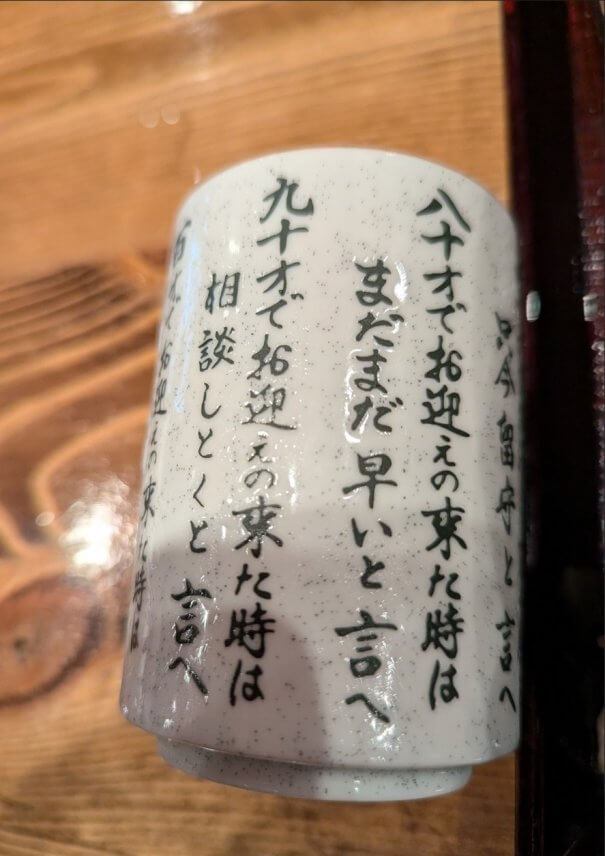 只今留守と言へ
八十才でお迎えの来た時は
まだまだ早いと言へ
九十才でお迎えの来た時は
相談しとくと言へ
百才でお迎えの来た時は